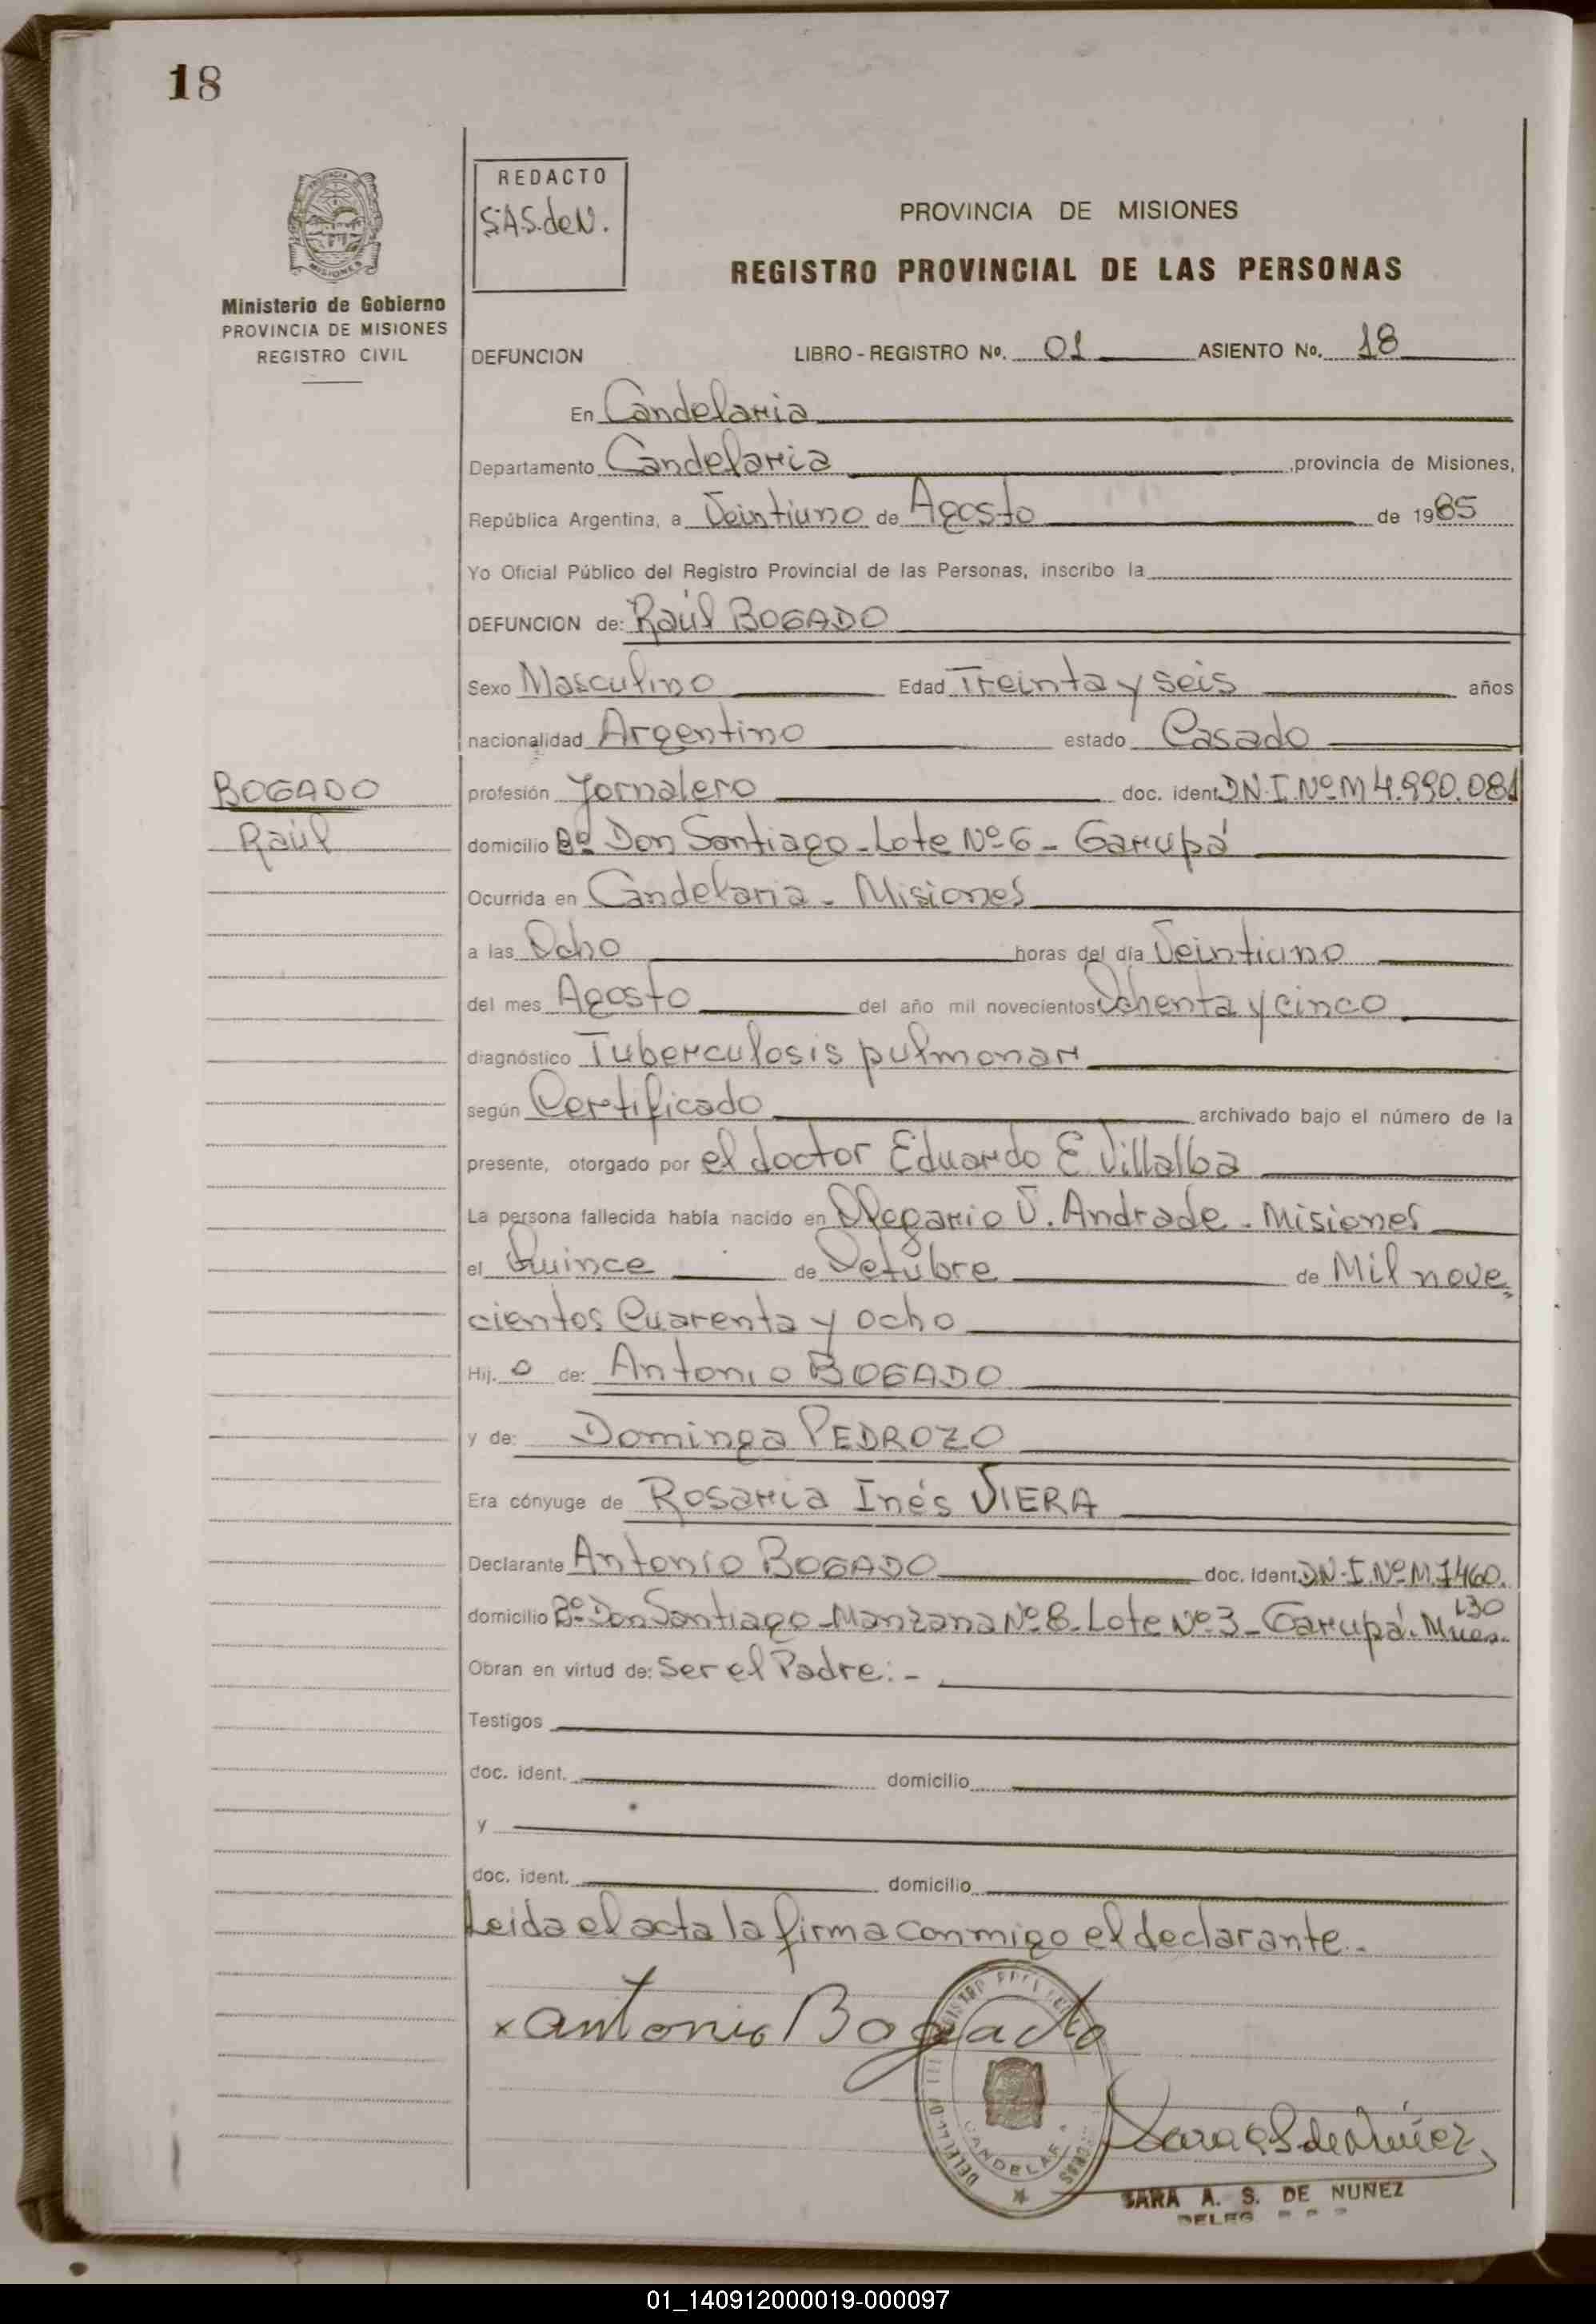 18
REDACTO
S.A.S.deN.
PROVINCIA DE MISIONES
REGISTRO PROVINCIAL DE LAS PERSONAS
Ministerio de Gobierno
PROVINCIA DE MISIONES
REGISTRO CIVIL
DEFUNCION LIBRO - REGISTRO Nº. 01 ASIENTO No. 18
En Candelaria
Departamento Candelaria ,provincia de Misiones,
República Argentina, a Veintiuno de Agosto de 1985
Yo Oficial Público del Registro Provincial de las Personas, inscribo la
DEFUNCION de: Raúl BOGADO
Sexo Masculino Edad Treinta y seis años
nacionalidad Argentino estado Casado
BOGADO
Raúl
profesión Jornalero doc. ident. D.N.I. Nº M 4.990.081
domicilio Bº Don Santiago - Lote Nº 6 - Garupá
Ocurrida en Candelaria - Misiones
a las Ocho horas del día Veintiuno
del mes Agosto del año mil novecientos Ochenta y cinco
diagnóstico Tuberculosis pulmonar
según Certificado archivado bajo el número de la
presente, otorgado por el doctor Eduardo E Villalba
La persona fallecida había nacido en Olegario V. Andrade - Misiones
el Quince de Octubre de Mil nove
cientos Cuarenta y ocho
Hij. o de: Antonio BOGADO
y de: Dominga PEDROZO
Era cónyuge de Rosaria Inés VIERA
Declarante Antonio BOGADO doc. Ident. D.N.I. Nº M. 7460.
130
domicilio Bº Don Santiago - Manzana Nº 8 - Lote Nº 3 - Garupá. Mnes.
Obran en virtud de: Ser el Padre.-
Testigos
doc. ident. domicilio
y
doc. ident. domicilio
Leida el acta la firma conmigo el declarante.
x Antonio Bogado
CANDELARIA
Sara A S de Nuñez
SARA A. S. DE NUÑEZ
DELEG
01_140912000019-000097